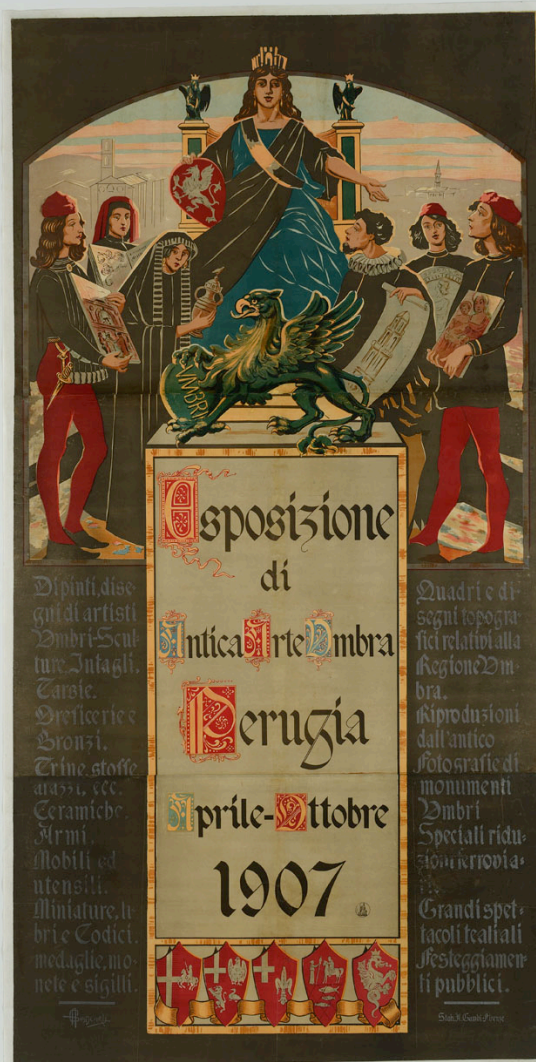 UMBRI
Esposizione
di
Antica Arte Umbra
Perugia
Aprile-Ottobre
1907
Dipinti, dise-
gni di artisti
Umbri-Scul-
ture. Intagli.
Tarsie.
Oreficerie e
Bronzi.
Trine, stoffe
arazzi, ecc.
Ceramiche.
Armi.
Mobili ed
utensili.
Miniature, li-
bri e Codici.
medaglie, mo-
nete e sigilli.
Quadri e di-
segni topogra-
fici relativi alla
Regione Um-
bra.
Riproduzioni
dall'antico
Fotografie di
monumenti
Umbri
Speciali ridu-
zioni ferrovia-
rie.
Grandi spet-
tacoli teatrali
Festeggiamen-
ti pubblici.